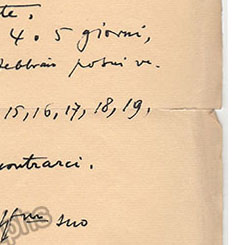 te.
4.5 giorni,
febbraio potrei ve-
15, 16, 17, 18, 19.
contrarci.
aff.mo suo